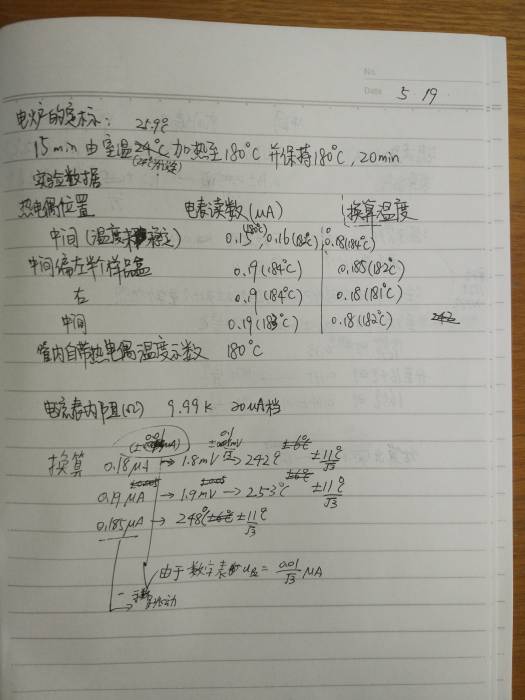 No.
Date 5 19
电炉的定标: 25.9℃
15min 由室温24℃加热至180℃ 并保持180℃, 20min
实验数据
热电偶位置 电表读数(μA) 换算温度
中间(温度 0.15, 0.16(182℃), 0.18(184℃)
中间偏左半个样品盒 0.19(184℃) 0.185(182℃)
右 0.19(184℃) 0.18(181℃)
中间 0.19(183℃) 0.18(182℃)
管内自带热电偶温度示数 180℃
电流表内阻(Ω) 9.99k 20μA档
换算 0.18μA → 1.8mV → 242℃ ±11℃/√3
0.19μA → 1.9mV → 253℃ ±11℃/√3
0.185μA → 248℃ ±11℃/√3
由于数字表 u_B = 0.01/√3 μA